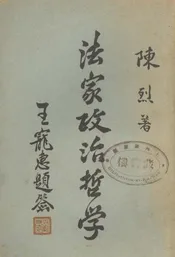 陳烈著
法家政治哲学
王寵惠題簽